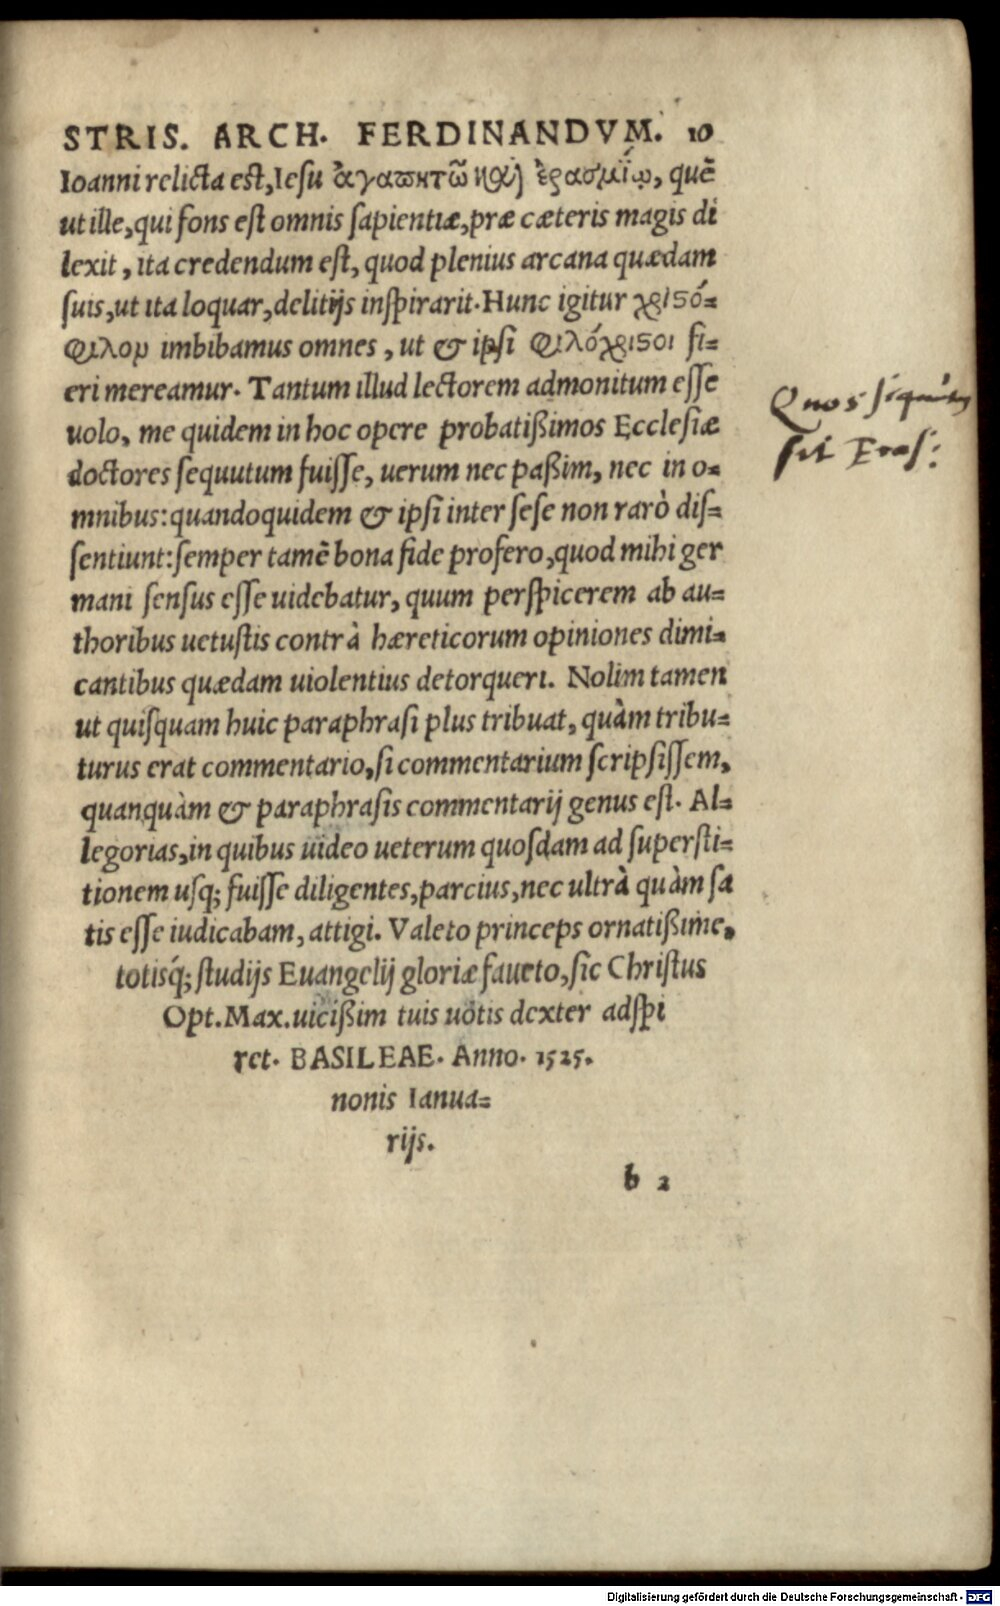 STRIS. ARCH. FERDINANDVM. 10
Ioanni relicta est, Iesu ἀγαπητῶ καὶ ἐρασμίῳ, quē
ut ille, qui fons est omnis sapientiæ, præ cæteris magis di
lexit, ita credendum est, quod plenius arcana quædam
suis, ut ita loquar, delitijs inspirarit. Hunc igitur χριστό=
φιλον imbibamus omnes, ut & ipsi φιλόχριστοι fi=
eri mereamur. Tantum illud lectorem admonitum esse
uolo, me quidem in hoc opere probatißimos Ecclesiæ
doctores sequutum fuisse, uerum nec paßim, nec in o=
mnibus: quandoquidem & ipsi inter sese non rarò dis=
sentiunt: semper tamē bona fide profero, quod mihi ger
mani sensus esse uidebatur, quum perspicerem ab au=
thoribus uetustis contrà hæreticorum opiniones dimi=
cantibus quædam uiolentius detorqueri. Nolim tamen
ut quisquam huic paraphrasi plus tribuat, quàm tribu=
turus erat commentario, si commentarium scripsissem,
quanquàm & paraphrasis commentarij genus est. Al=
legorias, in quibus uideo ueterum quosdam ad supersti=
tionem usq; fuisse diligentes, parcius, nec ultrà quàm sa
tis esse iudicabam, attigi. Valeto princeps ornatißime,
totisq́; studijs Euangelij gloriæ faueto, sic Christus
Opt. Max. uicißim tuis uotis dexter adspi
ret. BASILEAE. Anno. 1525.
nonis Ianua=
rijs.
b 2
Quos
sit Eras:
Digitalisierung gefördert durch die Deutsche Forschungsgemeinschaft - DFG